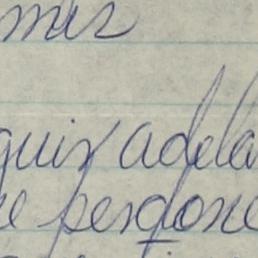 mis
guir adela
ue perdone